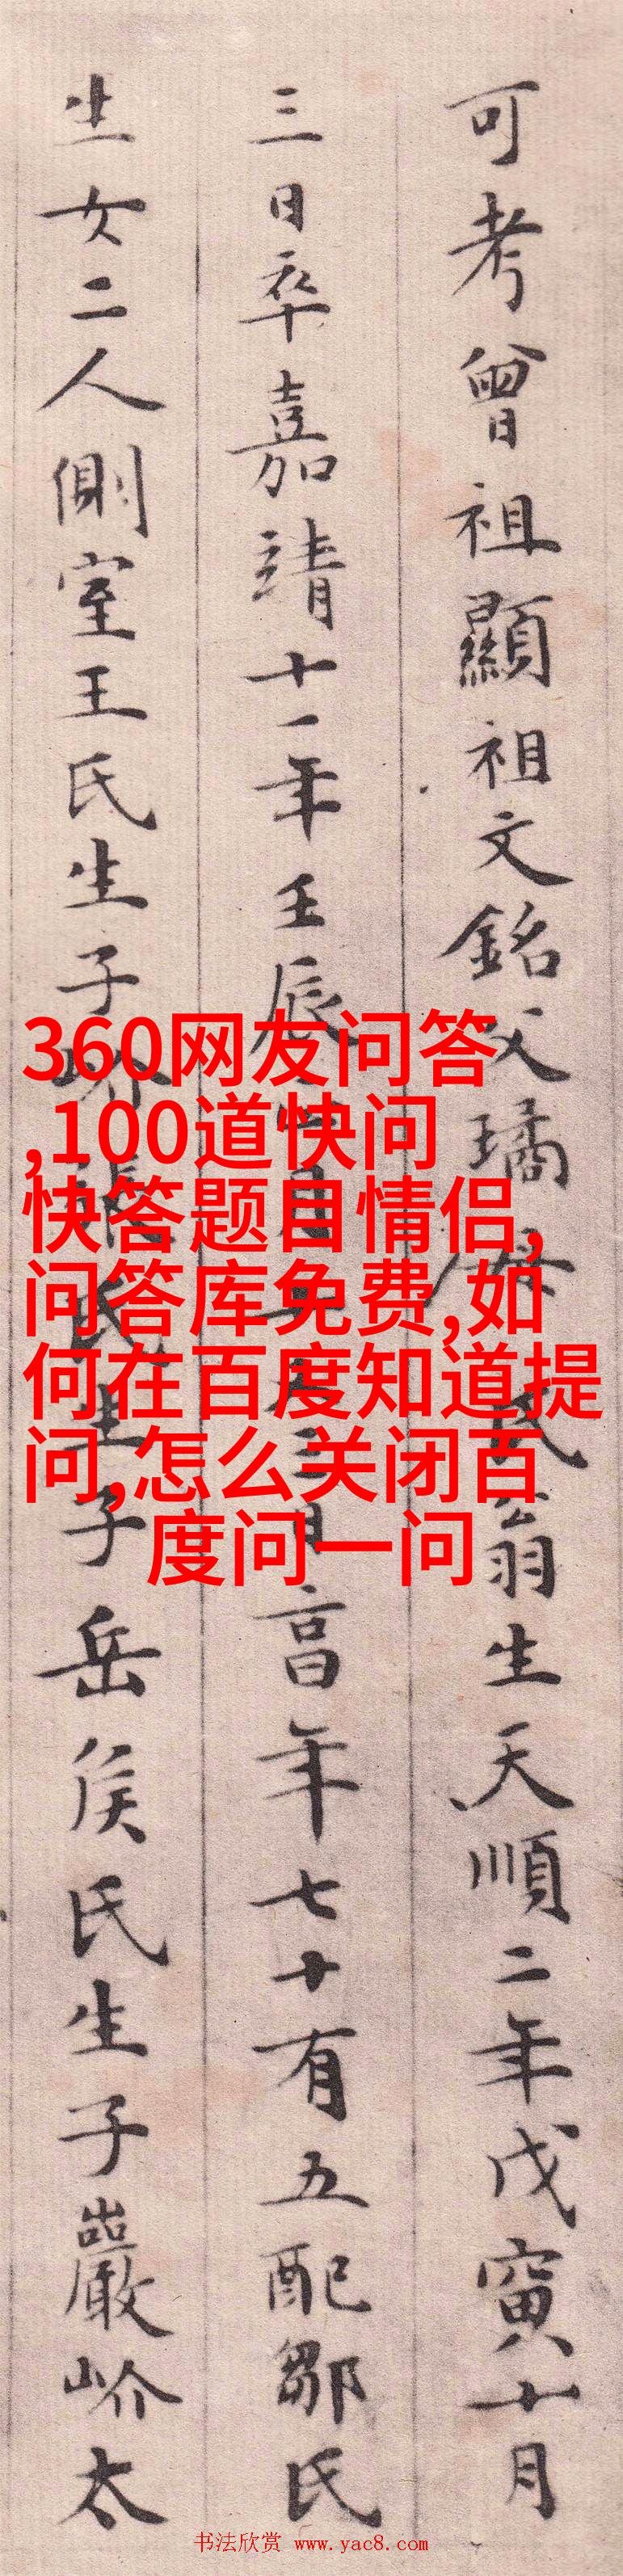 可考曾祖顯祖文銘父璚氏翁生天順二年戊寅十月
三日卒嘉靖十一年壬辰月三日享年七十有五配鄒氏
生女二人側室王氏生子岕張氏生子岳侯氏生子巖岕太
360网友问答
,100道快问
快答题目情侣,
问答库免费,如
何在百度知道提
问,怎么关闭百
度问一问
书法欣赏 www.yac8.com